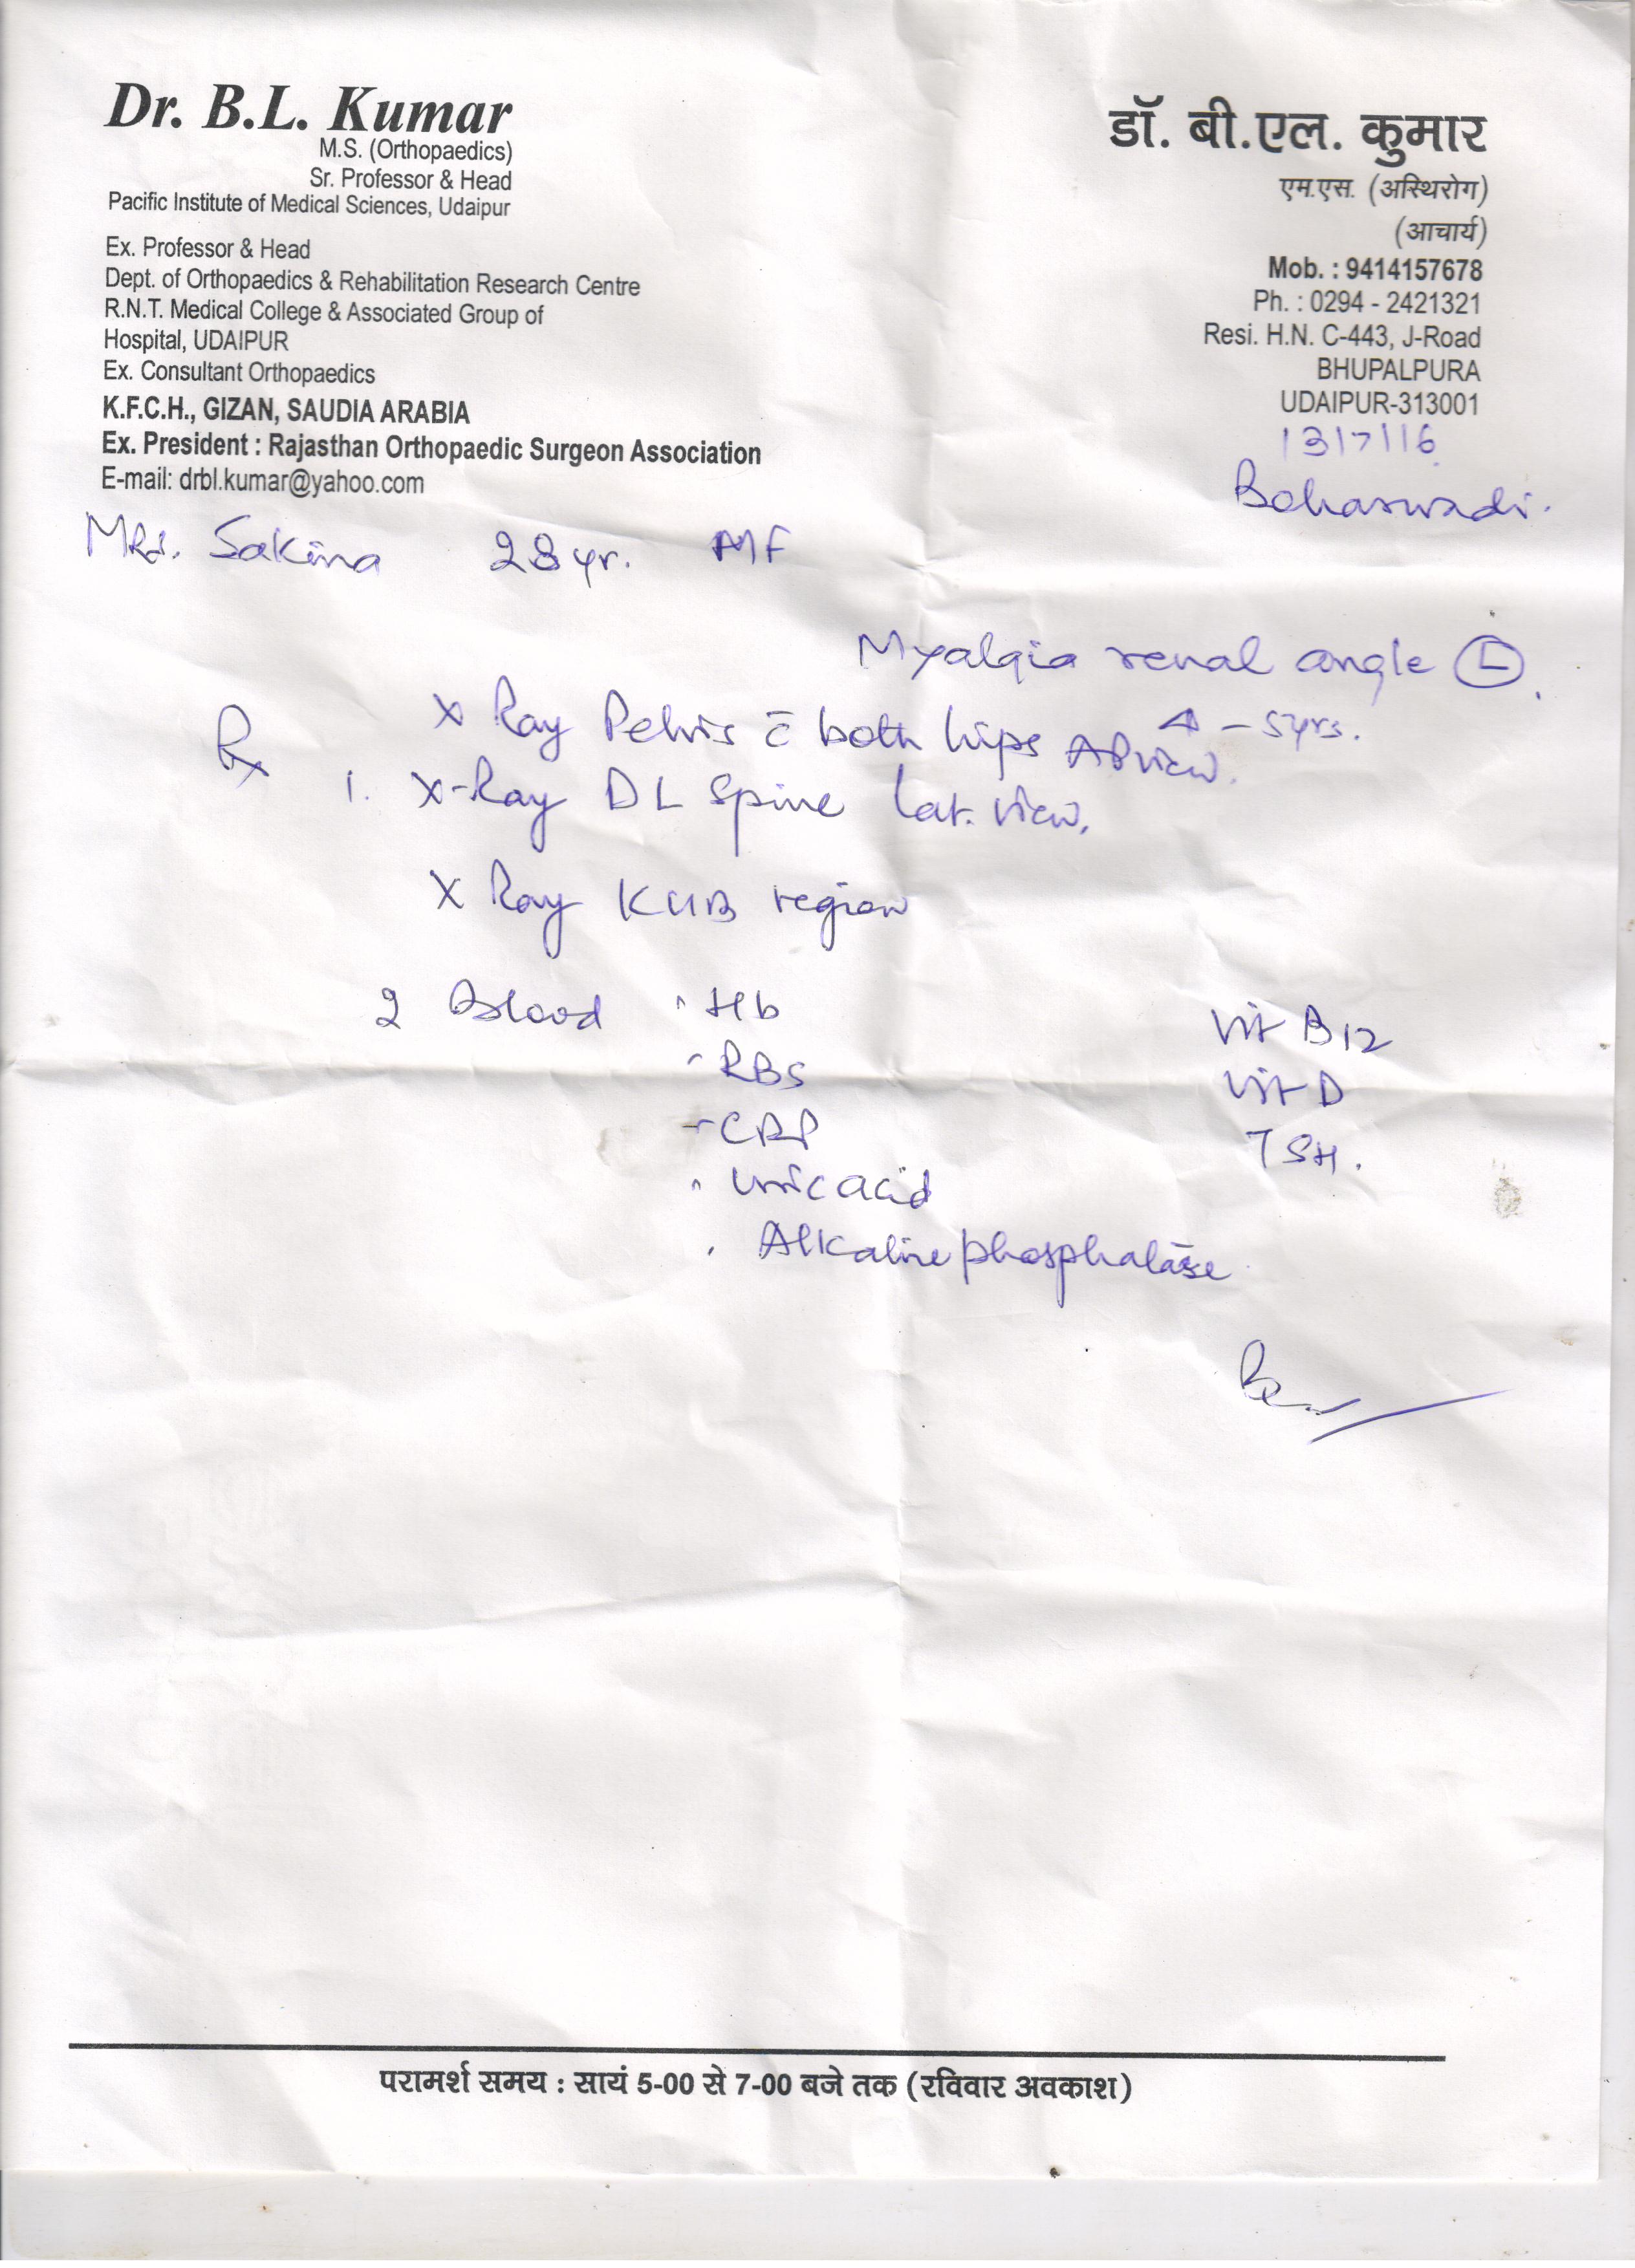 Dr. B.L. Kumar
M.S. (Orthopaedics)
Sr. Professor & Head
Pacific Institute of Medical Sciences, Udaipur
Ex. Professor & Head
Dept. of Orthopaedics & Rehabilitation Research Centre
R.N.T. Medical College & Associated Group of
Hospital, UDAIPUR
Ex. Consultant Orthopaedics
K.F.C.H., GIZAN, SAUDIA ARABIA
Ex. President : Rajasthan Orthopaedic Surgeon Association
E-mail: drbl.kumar@yahoo.com
डॉ. बी.एल. कुमार
एम.एस. (अस्थिरोग)
(आचार्य)
Mob. : 9414157678
Ph. : 0294 - 2421321
Resi. H.N. C-443, J-Road
BHUPALPURA
UDAIPUR-313001
13/7/16
Boharwadi.
Mrs. Sakina 28 yr. MF
Myalgia renal angle (L).
- 5yrs.
Rx
X Ray Pelvis c̄ both hips AP view.
1. X-Ray DL Spine Lat. view.
X Ray KUB region
2 Blood
- Hb
- RBS
- CRP
- Uric acid
. Alkaline phosphatase
Vit B12
Vit D
TSH.
परामर्श समय : सायं 5-00 से 7-00 बजे तक (रविवार अवकाश)